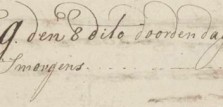 9 den 8 dito doorden dag
Smorgens